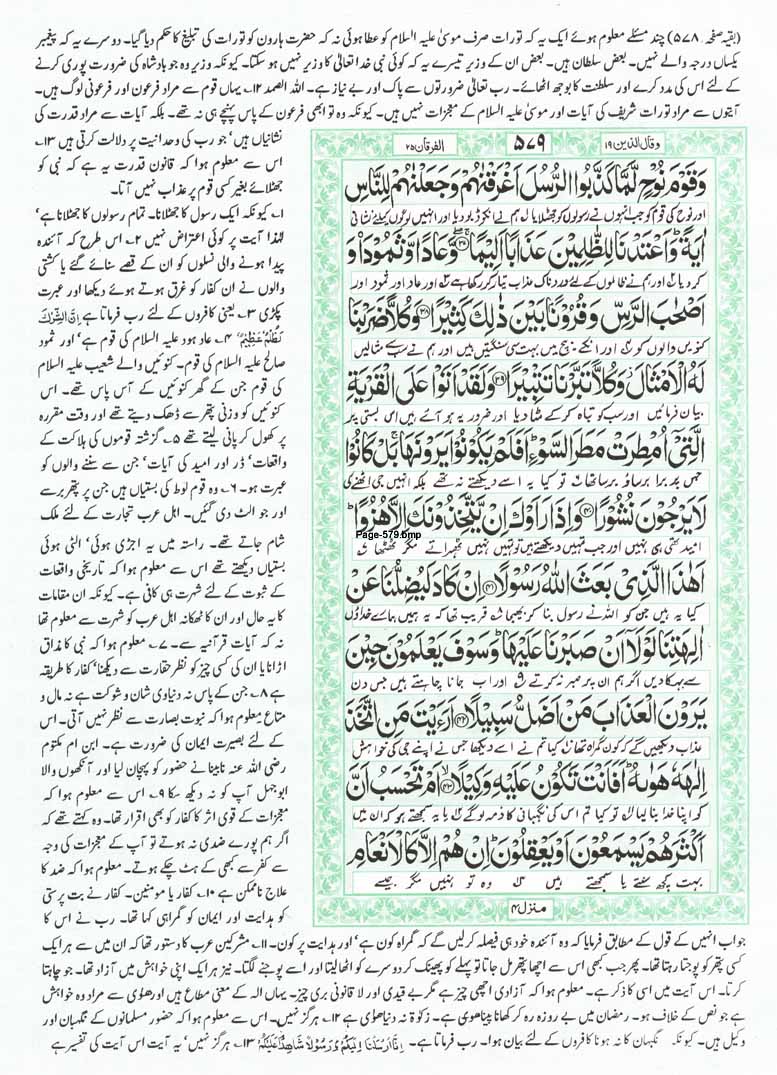 (بقیہ صفحہ ۵۷۸) چند مسئلے معلوم ہوئے ایک یہ کہ تورات صرف موسیٰ علیہ السلام کو عطا ہوئی نہ کہ حضرت ہارون کو تورات کی تبلیغ کا حکم دیا گیا۔ دوسرے یہ کہ پیغمبر
یکساں درجہ والے نہیں۔ بعض سلطان ہیں۔ بعض ان کے وزیر تیسرے یہ کہ کوئی نبی خدا تعالیٰ کا وزیر نہیں ہو سکتا۔ کیونکہ وزیر وہ جو بادشاہ کی ضرورت پوری کرنے
کے لئے اس کی مدد کرے اور سلطنت کا بوجھ اٹھائے۔ رب تعالیٰ ضرورتوں سے پاک اور بے نیاز ہے۔ اللہ الصمد ۱۲۔ یہاں قوم سے مراد فرعون اور فرعونی لوگ ہیں۔
آیتوں سے مراد تورات شریف کی آیات اور موسیٰ علیہ السلام کے معجزات نہیں ہیں۔ کیونکہ وہ تو ابھی فرعون کے پاس پہنچے ہی نہ تھے۔ بلکہ آیات سے مراد قدرت کی
وقال الذین ۱۹
۵۷۹
الفرقان ۲۵
وَقَوْمَ نُوْحٍ لَّمَّا كَذَّبُوا الرُّسُلَ اَغْرَقْنٰهُمْ وَجَعَلْنٰهُمْ لِلنَّاسِ
اور نوح کی قوم کو جب انہوں نے رسولوں کو جھٹلایا ہم نے انکو ڈبو دیا اور انہیں لوگوں کیلئے نشانی
اٰيَةً ؕ وَاَعْتَدْنَا لِلظّٰلِمِيْنَ عَذَابًا اَلِيْمًا ۚۖ۝۳۷ وَّعَادًا وَّثَمُوْدَا۟ وَ
کر دیا اور ہم نے ظالموں کے لئے دردناک عذاب تیار کر رکھا ہے اور عاد اور ثمود اور
اَصْحٰبَ الرَّسِّ وَقُرُوْنًۢا بَيْنَ ذٰلِكَ كَثِيْرًا ۝۳۸ وَكُلًّا ضَرَبْنَا
کنویں والوں کو اور انکے بیچ میں بہت سی سنگتیں اور ہم نے سب سے مثالیں
لَهُ الْاَمْثَالَ ؗ وَكُلًّا تَبَّرْنَا تَتْبِيْرًا ۝۳۹ وَلَقَدْ اَتَوْا عَلَى الْقَرْيَةِ
بیان فرمائیں اور سب کو تباہ کر کے مٹا دیا اور ضرور یہ ہو آئے ہیں اس بستی پر
الَّتِيْۤ اُمْطِرَتْ مَطَرَ السَّوْءِ ؕ اَفَلَمْ يَكُوْنُوْا يَرَوْنَهَا ۚ بَلْ كَانُوْا
جس پر برا برساؤ برسا تھا تو کیا یہ اسے دیکھتے نہ تھے بلکہ انہیں جی اٹھنے کی
لَا يَرْجُوْنَ نُشُوْرًا ۝۴۰ وَاِذَا رَاَوْكَ اِنْ يَّتَّخِذُوْنَكَ اِلَّا هُزُوًا ؕ
امید تھی ہی نہیں اور جب تمہیں دیکھتے ہیں تو تمہیں نہیں ٹھہراتے مگر ٹھٹھا
Page-579.bmp
اَهٰذَا الَّذِيْ بَعَثَ اللّٰهُ رَسُوْلًا ۝۴۱ اِنْ كَادَ لَيُضِلُّنَا عَنْ
کیا یہ ہیں جن کو اللہ نے رسول بنا کر بھیجا قریب تھا کہ یہ ہمیں ہمارے خداؤں
اٰلِهَتِنَا لَوْلَاۤ اَنْ صَبَرْنَا عَلَيْهَا ؕ وَسَوْفَ يَعْلَمُوْنَ حِيْنَ
سے بہکا دیں اگر ہم ان پر صبر نہ کرتے اور اب جانا چاہتے ہیں جس دن
يَرَوْنَ الْعَذَابَ مَنْ اَضَلُّ سَبِيْلًا ۝۴۲ اَرَءَيْتَ مَنِ اتَّخَذَ
عذاب دیکھیں گے کہ کون گمراہ تھا کیا تم نے اسے دیکھا جس نے اپنے جی کی خواہش
اِلٰهَهٗ هَوٰىهُ ؕ اَفَاَنْتَ تَكُوْنُ عَلَيْهِ وَكِيْلًا ۝۴۳ اَمْ تَحْسَبُ اَنَّ
کو اپنا خدا بنا لیا تو کیا تم اس کی نگہبانی کا ذمہ لو گے یا یہ سمجھتے ہو کہ ان میں
اَكْثَرَهُمْ يَسْمَعُوْنَ اَوْ يَعْقِلُوْنَ ؕ اِنْ هُمْ اِلَّا كَالْاَنْعَامِ
بہت کچھ سنتے یا سمجھتے ہیں وہ تو نہیں مگر جیسے
منزل ۴
نشانیاں ہیں' جو رب کی وحدانیت پر دلالت کرتی ہیں ۱۳۔
اس سے معلوم ہوا کہ قانون قدرت یہ ہے کہ نبی کو
جھٹلائے بغیر کسی قوم پر عذاب نہیں آتا۔
۱۔ کیونکہ ایک رسول کا جھٹلانا۔ تمام رسولوں کا جھٹلانا ہے'
لہٰذا آیت پر کوئی اعتراض نہیں ۲۔ اس طرح کہ آئندہ
پیدا ہونے والی نسلوں کو ان کے قصے سنائے گئے یا کشتی
والوں نے ان کفار کو غرق ہوتے ہوئے دیکھا اور عبرت
پکڑی ۳۔ یعنی کافروں کے لئے رب فرماتا ہے اِنَّ الشِّرْكَ
لَظُلْمٌ عَظِيْمٌ ۴۔ عاد ہود علیہ السلام کی قوم ہے' اور ثمود
صالح علیہ السلام کی قوم۔ کنوئیں والے شعیب علیہ السلام
کی قوم جن کے گھر کنوئیں کے آس پاس تھے۔ اس
کنوئیں کو وزنی پتھر سے ڈھک دیتے تھے اور وقت مقررہ
پر کھول کر پانی لیتے تھے ۵۔ گزشتہ قوموں کی ہلاکت کے
واقعات' ڈر اور امید کی آیات' جن سے سننے والوں کو
عبرت ہو۔ ۶۔ وہ قوم لوط کی بستیاں ہیں جن پر پتھر برسے
اور جو الٹ دی گئیں۔ اہل عرب تجارت کے لئے ملک
شام جاتے تھے۔ راستہ میں یہ اجڑی ہوئی' الٹی ہوئی
بستیاں دیکھتے تھے اس سے معلوم ہوا کہ تاریخی واقعات
کے ثبوت کے لئے شہرت ہی کافی ہے۔ کیونکہ ان مقامات
کا یہ حال اور ان کا ٹھکانہ اہل عرب کو شہرت سے معلوم تھا
نہ کہ آیات قرآنیہ سے۔ ۷۔ معلوم ہوا کہ نبی کا مذاق
اڑانا یا ان کی کسی چیز کو نظر حقارت سے دیکھنا' کفار کا طریقہ
ہے ۸۔ جن کے پاس نہ دنیاوی شان و شوکت ہے نہ مال و
متاع معلوم ہوا کہ نبوت بصارت سے نظر نہیں آتی۔ اس
کے لئے بصیرت ایمان کی ضرورت ہے۔ ابن ام مکتوم
رضی اللہ عنہ نابینا نے حضور کو پہچان لیا اور آنکھوں والا
ابوجہل آپ کو نہ دیکھ سکا ۹۔ اس سے معلوم ہوا کہ
معجزات کے قوی اثر کا کفار کو بھی اقرار تھا۔ وہ کہتے تھے کہ
اگر ہم پورے ضدی نہ ہوتے تو آپ کے معجزات کی وجہ
سے کفر سے کبھی کے ہٹ چکے ہوتے۔ معلوم ہوا کہ ضد کا
علاج ناممکن ہے ۱۰۔ کفار یا مومنین۔ کفار نے بت پرستی
کو ہدایت اور ایمان کو گمراہی کہا تھا۔ رب نے اس کا
جواب انہیں کے قول کے مطابق فرمایا کہ وہ آئندہ خود ہی فیصلہ کر لیں گے کہ گمراہ کون ہے' اور ہدایت پر کون۔ ۱۱۔ مشرکین عرب کا دستور تھا کہ ان میں سے ہر ایک
کسی پتھر کو پوجتا رہتا تھا۔ پھر جب کبھی اس سے اچھا پتھر مل جاتا تو پہلے کو پھینک کر دوسرے کو اٹھا لیتا اور اسے پوجنے لگتا۔ نیز ہر ایک اپنی خواہش میں آزاد تھا۔ جو چاہتا
کرتا۔ اس آیت میں اسی کا ذکر ہے۔ معلوم ہوا کہ آزادی اچھی چیز ہے مگر بے قیدی اور لا قانونی بری چیز۔ یہاں الہ کے معنی مطاع ہیں اور ھویٰ سے مراد وہ خواہش
ہے جو نص کے خلاف ہو۔ رمضان میں بے روزہ رہ کر کھانا پینا ھویٰ ہے۔ زکوٰۃ نہ دینا ھویٰ ہے ۱۲۔ ہرگز نہیں۔ اس سے معلوم ہوا کہ حضور مسلمانوں کے نگہبان اور
وکیل ہیں۔ کیونکہ نگہبان کا نہ ہونا کافروں کے لئے بیان ہوا۔ رب فرماتا ہے۔ اِنَّاۤ اَرْسَلْنَاۤ اِلَيْكُمْ رَسُوْلًا شَاهِدًا عَلَيْكُمْ ۱۳۔ ہرگز نہیں' یہ آیت اس آیت کی تفسیر ہے